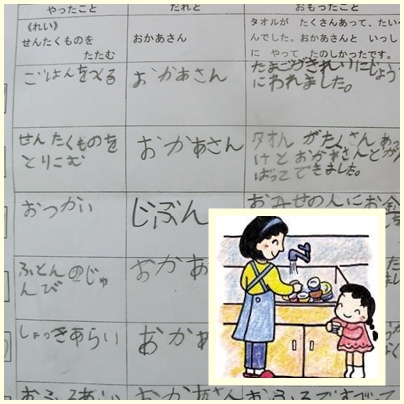 やったこと
だれと
おもったこと
《れい》
せんたくものを
たたむ
おかあさん
タオルが たくさんあって、たいへ
んでした。おかあさんと いっし
に やって たのしかったです。
ごはんをつくる
おかあさん
たまごがきれいに
にわれました。
せんたくものを
とりこむ
おかあさん
タオル がたくさんあっ
けどおかあさんとがん
ばって できました。
おつかい
じぶん
おみせの人にお金
ふとんのじゅ
んび
おかあ
しょっきあらい
おかあ
おかあさん